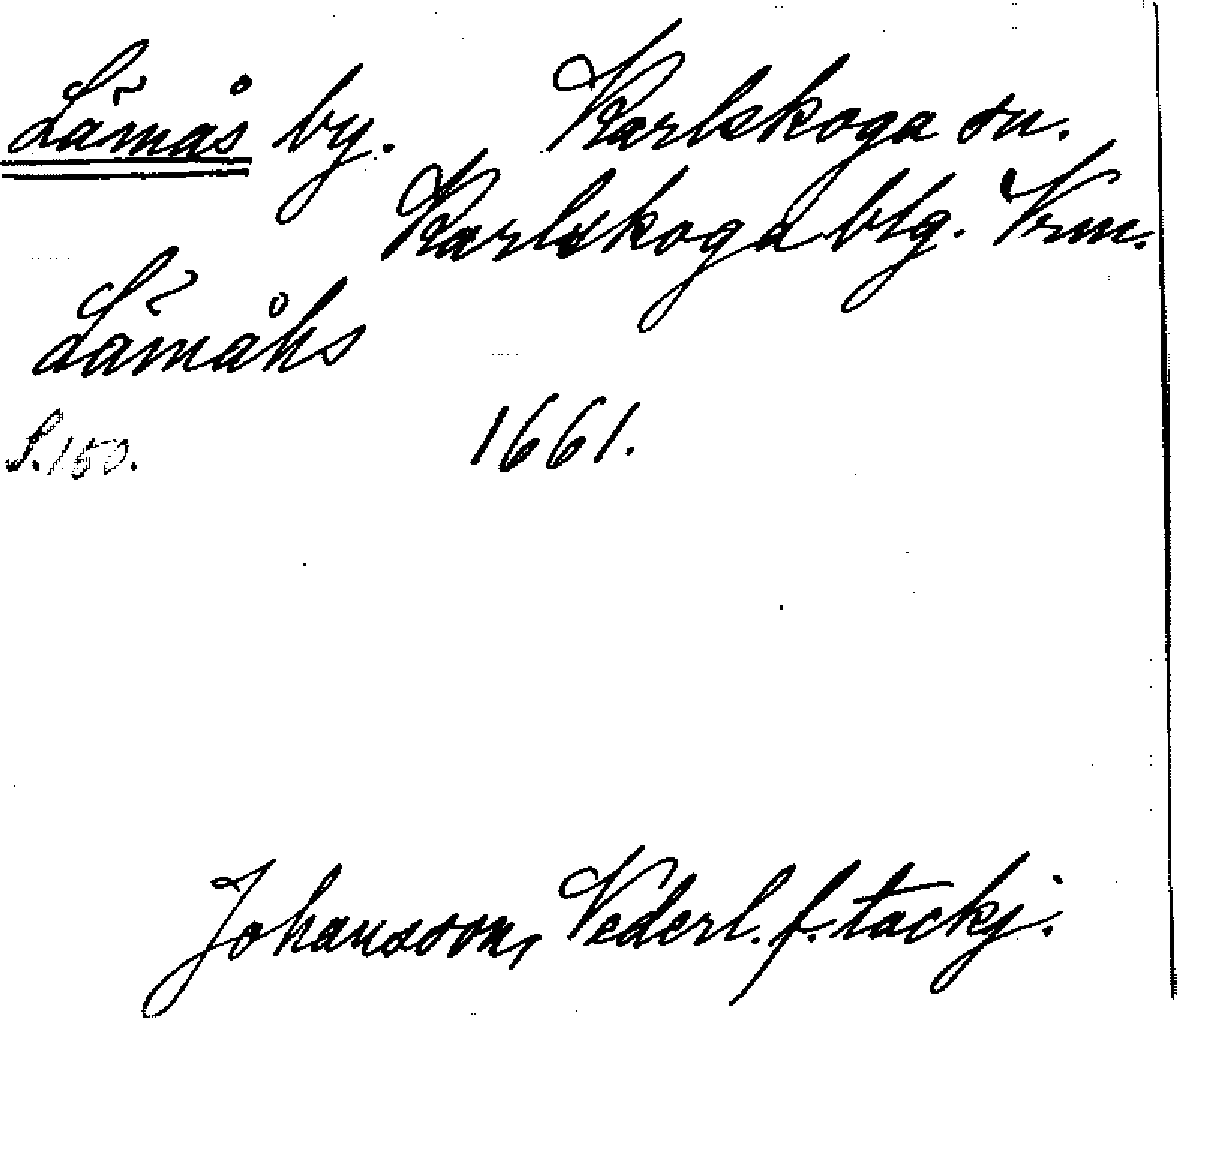 Låmås by. Karlskoga sn.
Karlskoga blg. Vrm.
Låmåhs
S. 150. 1661.
Johansson, Vederl. f. tackj.